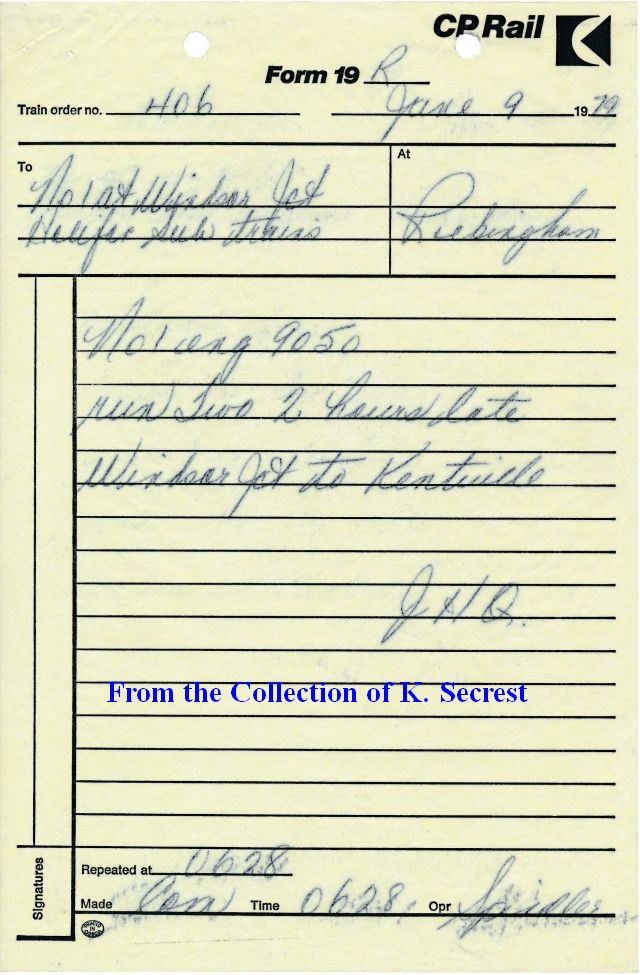 CP Rail
Form 19 R
Train order no. 406 June 9 1979
To At
No 1 at Windsor Jct
Halifax Sub trains
No 1 eng 9050
run Two 2 hours late
Windsor Jct to Kentville
J H Q.
From the Collection of K. Secrest
Signatures
Repeated at 0628
Made Com Time 0628 Opr
PRINTED IN CANADA